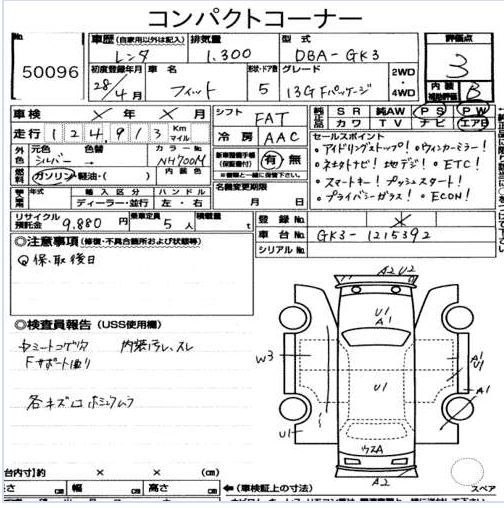 コンパクトコーナー
No. 50096
車歴 (自家用以外は記入) レンタ
排気量 1,300
型式 DBA-GK3
評価点 3
初度登録年月 28年4月
車名 フィット
形状・ドア数 5
グレード 13G Fパッケージ
2WD
4WD
内装 補助評価 B
車検 ×年×月
シフト FAT
純正 SR 純AW PS PW
社外 カワ TV ナビ エアB
走行 124,913 Km マイル
冷房 AAC
セールスポイント
外色 元色 シルバー 色替 カラーNo. NH700M
アイドリングストップ! ウィンカーミラー!
燃料 ガソリン 軽油・( ) 内装色
有 無
インタナビ! 地デジ! ETC!
年式 輸入区分 ハンドル
ディーラー・並行 左・右
名義変更期限 月 日
スマートキー! プッシュスタート!
プライバシーガラス! ECON!
リサイクル預託金 9,880円
乗車定員 5人
積載量 t
登録No. ×
車台No. GK3-1215392
シリアルNo.
◎注意事項 (修復・不具合箇所および状態等)
保、取後日
◎検査員報告 (USS使用欄)
内装汚れ、スレ
Fサポート曲り
各キズ凹
A2 U2
U1
A1
W3
U1
A1
U1
A1
U1
ウスA
A2
台内寸)約 × × (cm)
さ cm 幅 cm 高さ cm
←(車検証上の寸法)
スペア